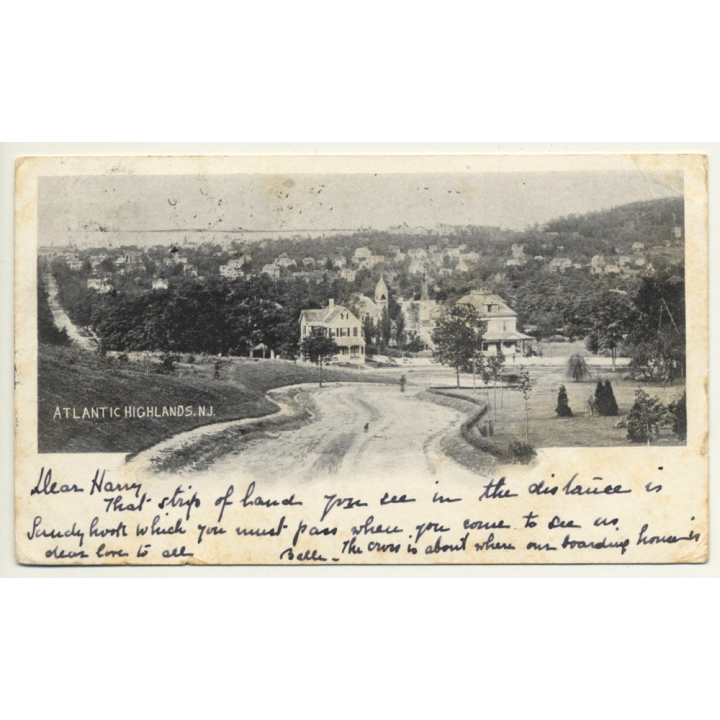 ATLANTIC HIGHLANDS. N.J.
Dear Harry
That strip of land you see in the distance is
Sandy hook which you must pass when you come to see us
dear love to all Belle - The cross is about where our boarding house is